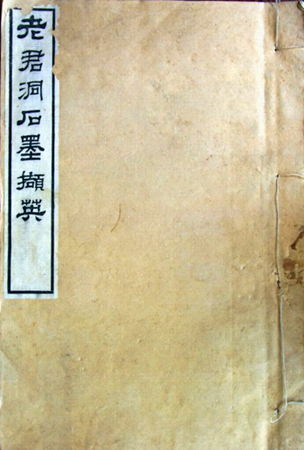 老君洞石墨擷英